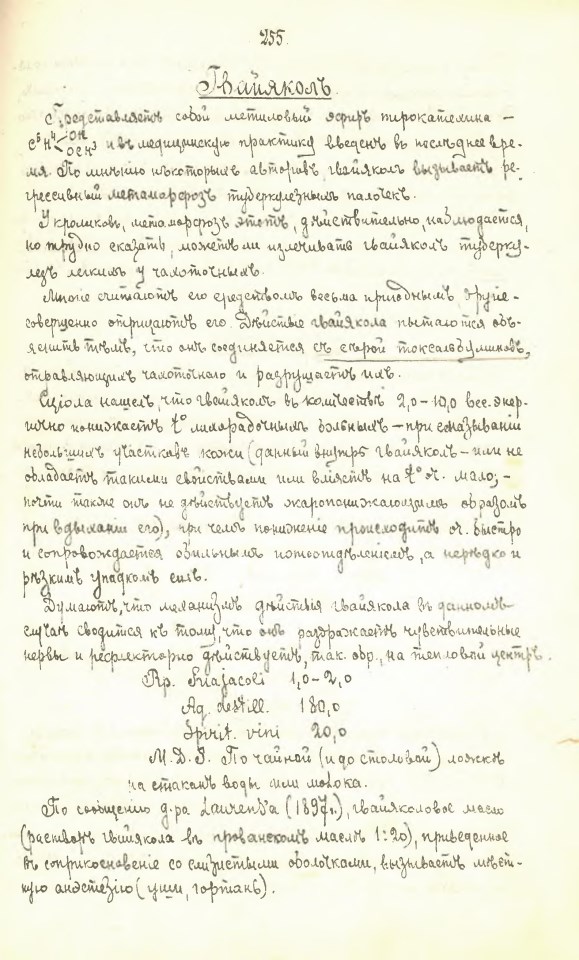 255.
Гвайяколъ.
Представляетъ собой метиловый эфиръ пирокатехина —
C⁶H⁴<OH OCH³ и въ медицинскую практику введенъ въ послѣднее вре-
мя. По мнѣнію нѣкоторыхъ авторовъ гвайяколъ вызываетъ ре-
грессивный метаморфозъ туберкулезныхъ палочекъ.
У кроликовъ, метаморфозъ этотъ, дѣйствительно, наблюдается,
но трудно сказать, можетъ ли излечивать гвайяколъ туберку-
лезъ легкихъ у чахоточныхъ.
Многіе считаютъ его средствомъ весьма пригоднымъ, другіе-
совершенно отрицаютъ его. Дѣйствіе гвайякола пытаются объ-
яснить тѣмъ, что онъ соединяется съ сѣрой токсальбуминовъ,
отравляющихъ чахоточнаго и разрушаетъ ихъ.
Сціола нашелъ, что гвайяколъ въ количествѣ 2,0–10,0 вес. энер-
гично понижаетъ t° лихорадочныхъ больныхъ — при смазываніи
небольшихъ участковъ кожи (данный внутрь гвайяколъ — или не
обладаетъ такими свойствами или вліяетъ на t° оч. мало; —
почти также онъ не дѣйствуетъ жаропонижающимъ образомъ
при вдыханіи его), при чемъ пониженіе происходитъ оч. быстро
и сопровождается обильнымъ потоотдѣленіемъ, а нерѣдко и
рѣзкимъ упадкомъ силъ.
Думаютъ, что механизмъ дѣйствія гвайякола въ данномъ
случаѣ сводится къ тому, что онъ раздражаетъ чувствительные
нервы и рефлекторно дѣйствуетъ, так. обр., на тепловой центръ.
Rp. Guajacoli 1,0–2,0
Aq. destill. 180,0
Spirit. vini 20,0
M. D. S. По чайной (и до столовой) ложкѣ
на стаканъ воды или молока.
По сообщенію д-ра Laurens'а (1897 г.), гвайяколовое масло
(растворъ гвайякола въ прованскомъ маслѣ 1:20), приведенное
въ соприкосновеніе со слизистыми оболочками, вызываетъ мѣст-
ную анэстезію (уши, гортань).